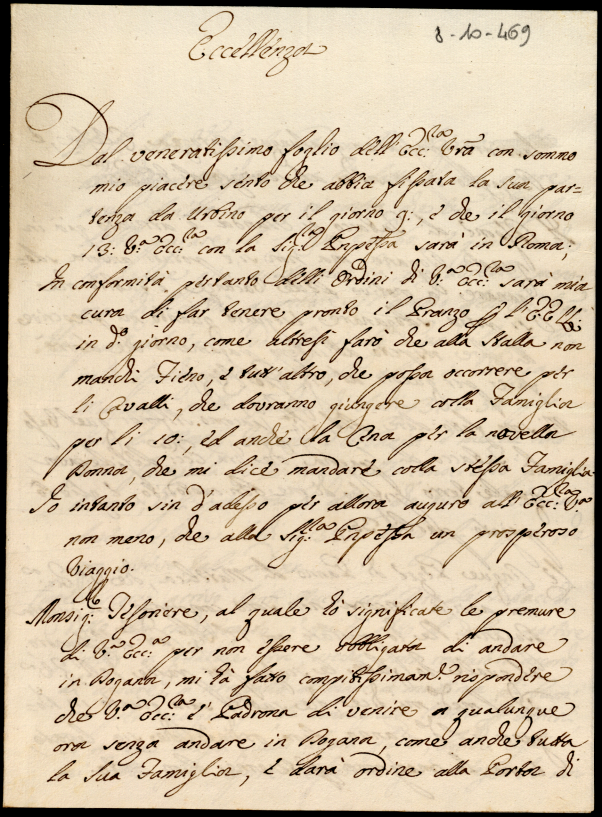 8-10-469
Eccellenza
Dal veneratissimo foglio dell'Ecc:za Vra con sommo
mio piacere sento che abbia fissata la sua par=
tenza da Urbino per il giorno 9:, e che il giorno
13: V.a Ecc:za con la Sig:ra Pnpessa sarà in Roma;
In conformità pertanto delli Ordini di V.a Ecc:za sarà mia
cura di far tenere pronto il Pranzo p l'EE LL:
in d.o giorno, come altresì farò che alla stalla non
manchi Fieno, e tutt'altro, che possa occorrere per
li Cavalli, che dovranno giungere colla Famiglia
per li 10:, ed anche la Cena per la novella
Donna, che mi dice mandare colla stessa Famiglia.
Io intanto sin d'adesso per allora auguro all'Ecc:za V.a
non meno, che alla Sig:ra Pnpessa un prosperoso
Viaggio.
Monsig:r Tesoriere, al quale hò significate le premure
di V.a Ecc:a per non essere obbligata di andare
in Dogana, mi hà fatto compitissimam.e rispondere
che V.a Ecc:za è Padrona di venire a qualunque
ora senza andare in Dogana, come anche tutta
la sua Famiglia, e darà ordine alla Porta di